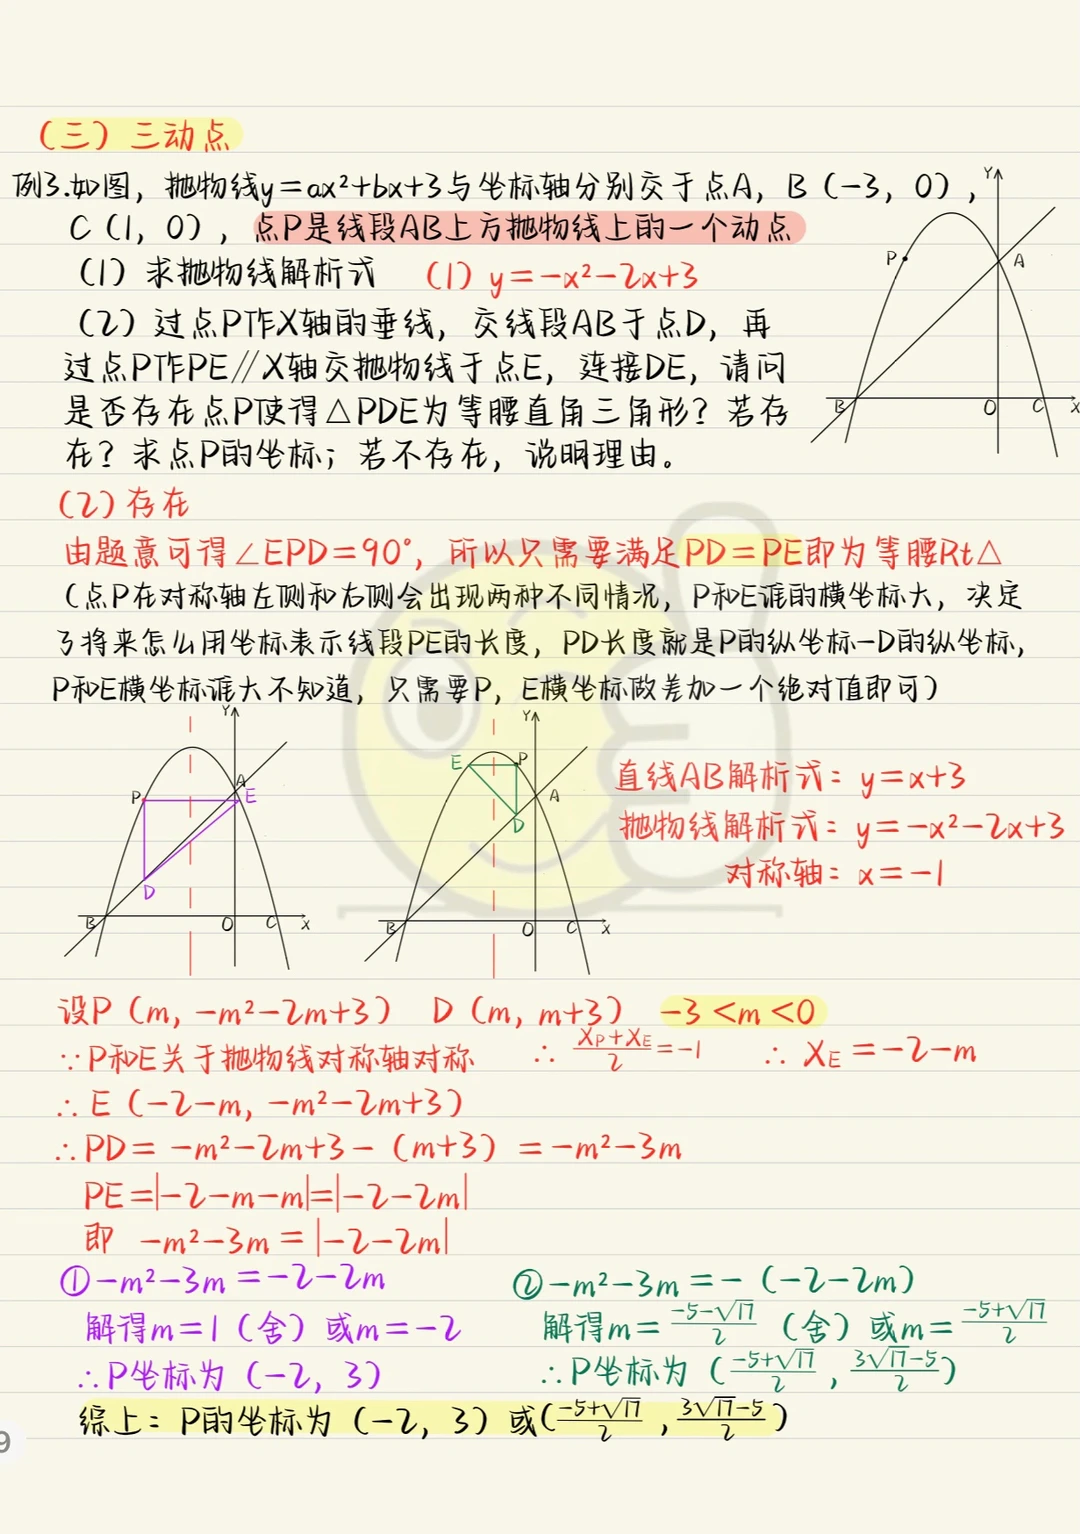 (三)三动点
例3.如图，抛物线y=ax²+bx+3与坐标轴分别交于点A，B(-3，0)，
C(1，0)，点P是线段AB上方抛物线上的一个动点
(1)求抛物线解析式 (1) y=-x²-2x+3
(2)过点P作X轴的垂线，交线段AB于点D，再
过点P作PE//X轴交抛物线于点E，连接DE，请问
是否存在点P使得△PDE为等腰直角三角形？若存
在？求点P的坐标；若不存在，说明理由。
Y
P
A
B
O
C
X
(2)存在
由题意可得∠EPD=90°，所以只需要满足PD=PE即为等腰Rt△
(点P在对称轴左侧和右侧会出现两种不同情况，P和E谁的横坐标大，决定
了将来怎么用坐标表示线段PE的长度，PD长度就是P的纵坐标-D的纵坐标，
P和E横坐标谁大不知道，只需要P，E横坐标做差加一个绝对值即可)
Y
A
P
E
D
B
O
C
X
Y
E
P
A
D
B
O
C
X
直线AB解析式：y=x+3
抛物线解析式：y=-x²-2x+3
对称轴：x=-1
设P(m，-m²-2m+3) D(m，m+3) -3<m<0
∵P和E关于抛物线对称轴对称 ∴ (X_P+X_E)/2=-1 ∴ X_E=-2-m
∴E(-2-m，-m²-2m+3)
∴PD=-m²-2m+3-(m+3)=-m²-3m
PE=|-2-m-m|=|-2-2m|
即 -m²-3m=|-2-2m|
①-m²-3m=-2-2m ②-m²-3m=-(-2-2m)
解得m=1(舍)或m=-2 解得m=(-5-√17)/2(舍)或m=(-5+√17)/2
∴P坐标为(-2，3) ∴P坐标为((-5+√17)/2，(3√17-5)/2)
综上：P的坐标为(-2，3)或((-5+√17)/2，(3√17-5)/2)
9